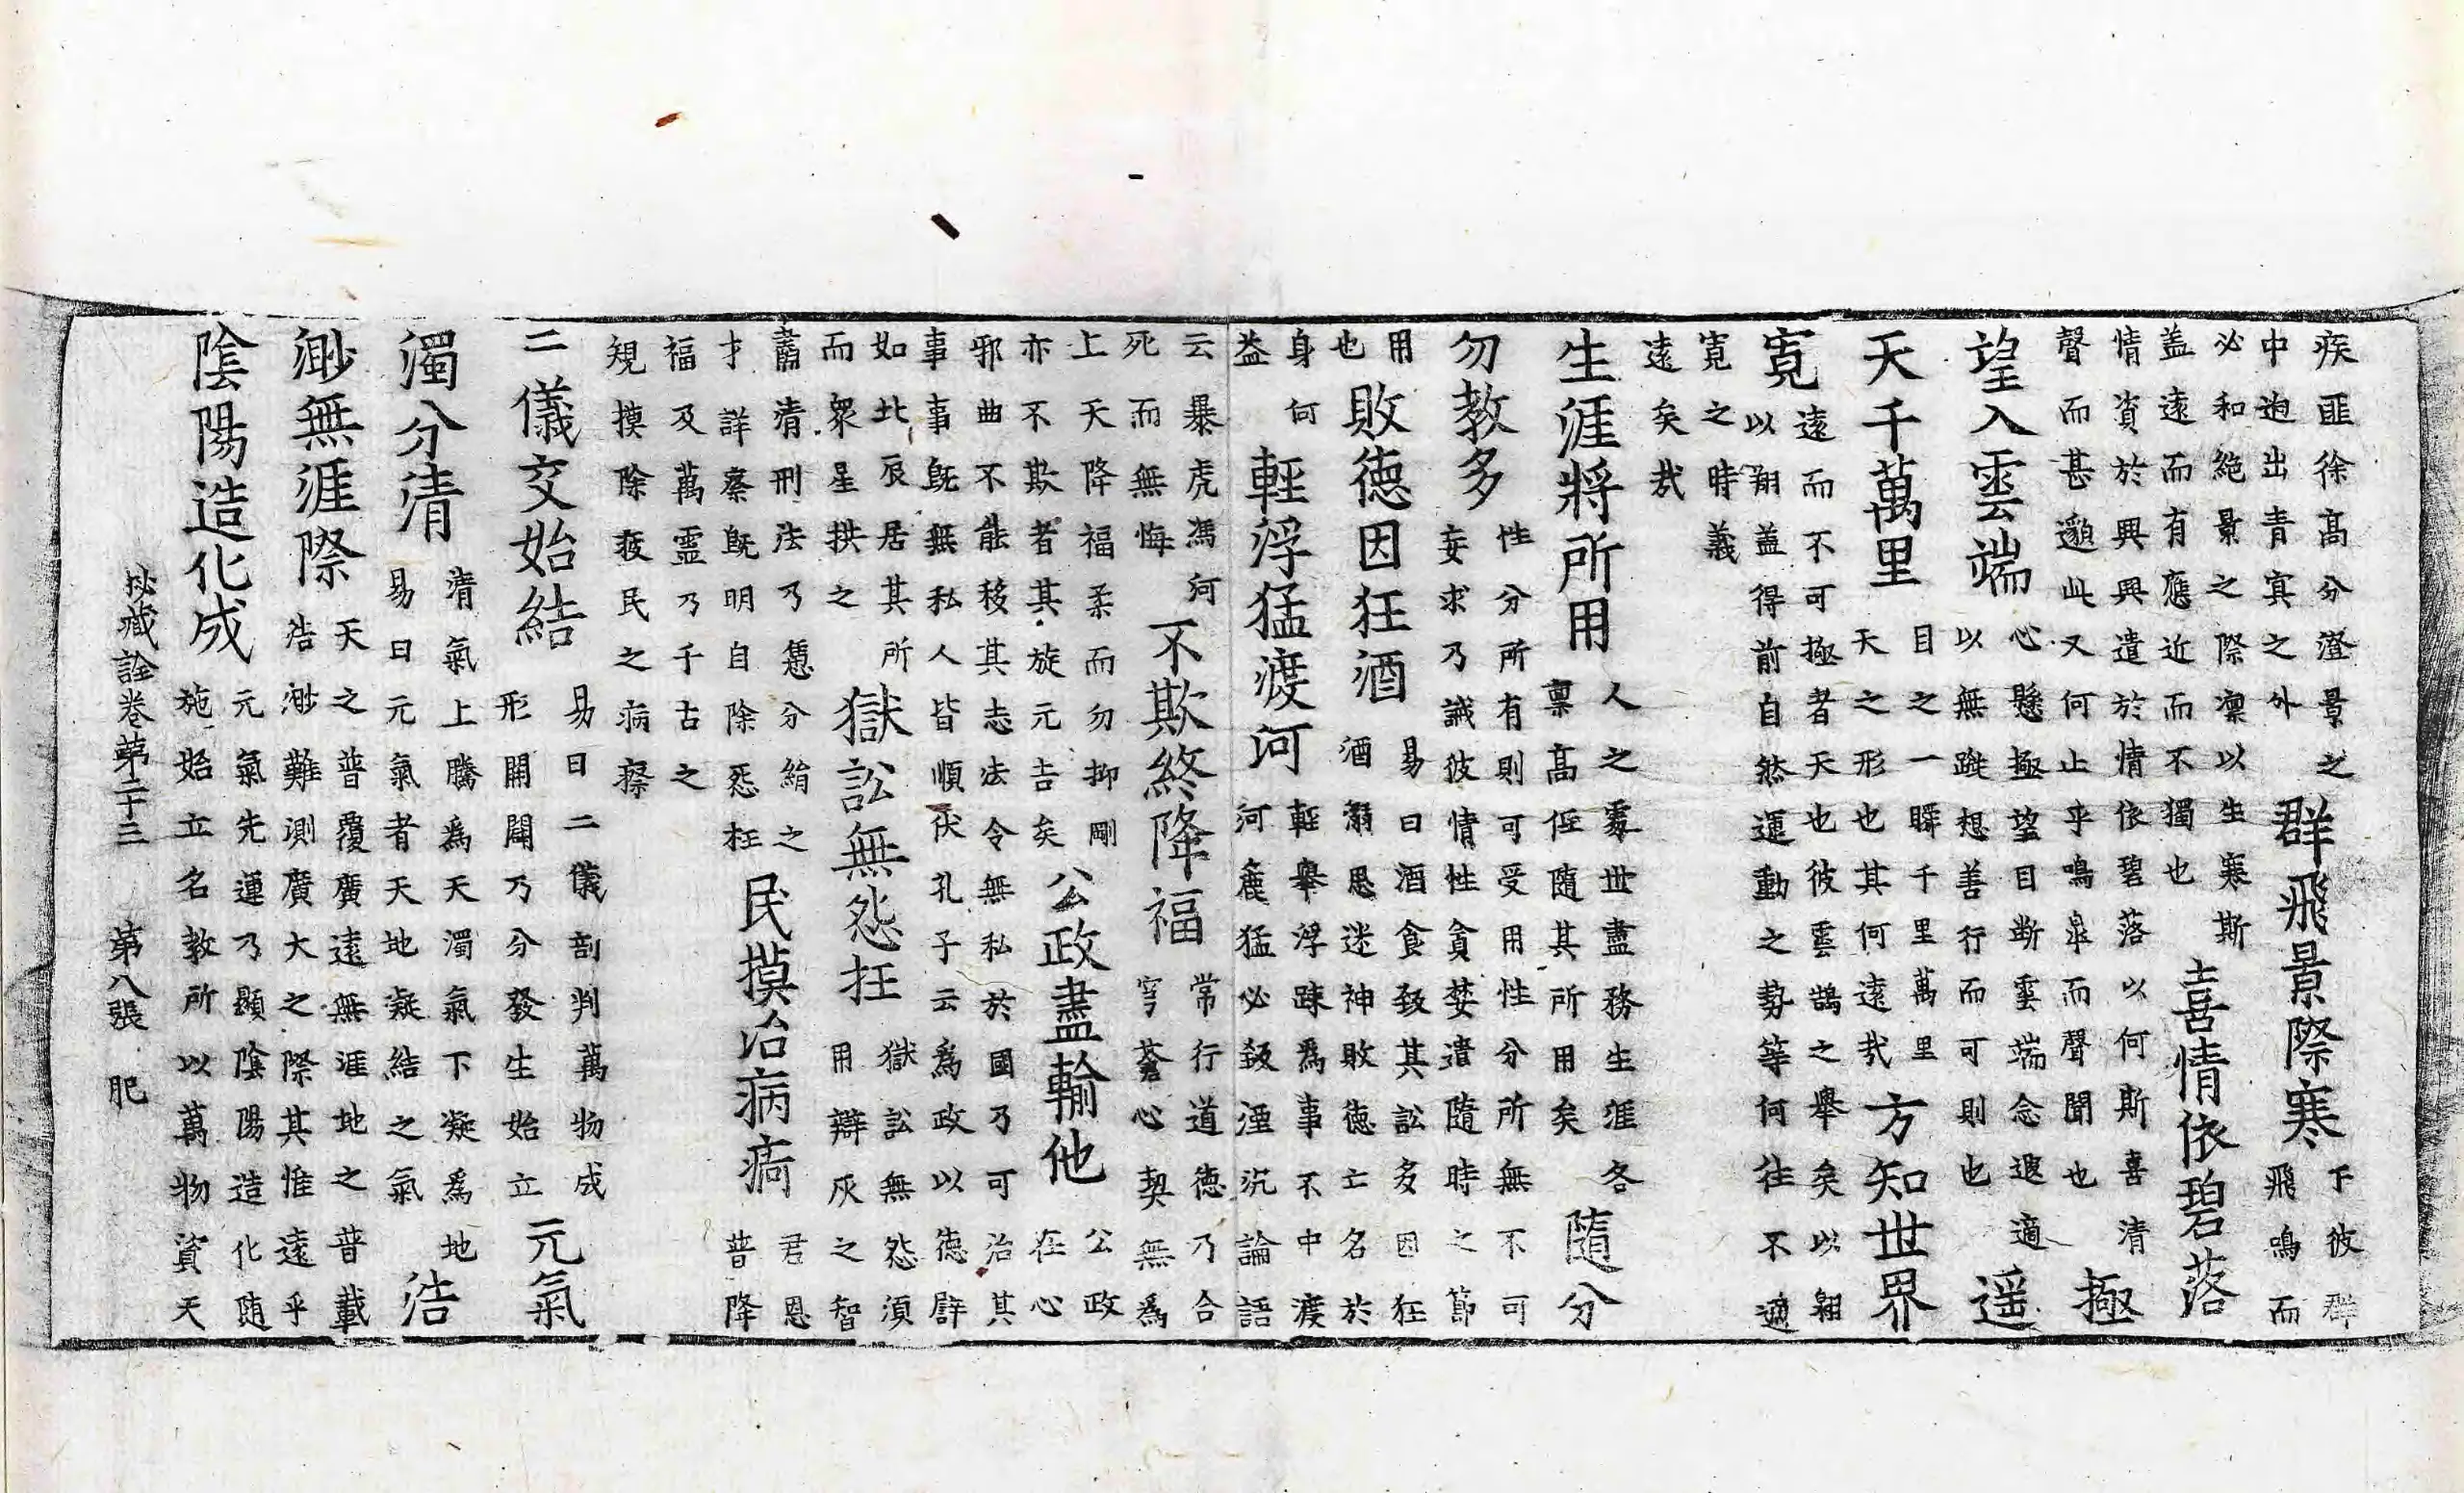 疾匪徐高分澄景之
中逈出青㝠之外
群飛景際寒
下彼群
飛鳴而
必和絶景之際凛以生寒斯
蓋遠而有應近而不獨也
喜情依碧落
情資於興興遣於情依碧落以何斯喜清
聲而甚邈此又何止乎鳴臯而聲聞也
極
望入雲端
心懸極望目斷雲端念遐適
以無蹤想善行而可則也
遥
天千萬里
目之一瞬千里萬里
天之形也其何遠哉
方知世界
寛
遠而不可極者天也彼雲鵠之舉矣以翱
以翔蓋得前自然運動之勢等何往不適
寛之時義
遠矣哉
生涯將所用
人之處世盡務生涯各
禀高低隨其所用矣
隨分
勿教多
性分所有則可受用性分所無不可
妄求乃誡彼情性貪婪遣隨時之節
用
也
敗德因狂酒
易曰酒食致其訟多因狂
酒溺思迷神敗德亡名於
身何
益
輕浮猛渡河
輕舉浮踈為事不中渡
河麁猛必致湮沉論語
云暴虎馮河
死而無悔
不欺終降福
常行道德乃合
穹蒼心契無為
上天降福柔而勿抑剛
亦不欺者其旋元吉矣
公政盡輸他
公政
在心
邪曲不能移其志法令無私於國乃可治其
事事既無私人皆順伏孔子云為政以德辟
如北辰居其所
而衆星拱之
獄訟無怨抂
獄訟無怨湏
用辯灰之智
肅清刑法乃慿分絹之
才詳察既明自除怨枉
民摸治病痾
君恩
普降
福及萬靈乃千古之
規摸除疲民之病瘵
二儀交始結
易曰二儀剖判萬物成
形開闢乃分發生始立
元氣
濁分清
清氣上騰為天濁氣下凝為地
易曰元氣者天地凝結之氣
浩
渺無涯際
天之普覆廣遠無涯地之普載
浩渺難測廣大之際其惟遠乎
陰陽造化成
元氣先運乃顯陰陽造化隨
施始立名教所以萬物資天
秘藏詮卷第二十三 第八張 肥